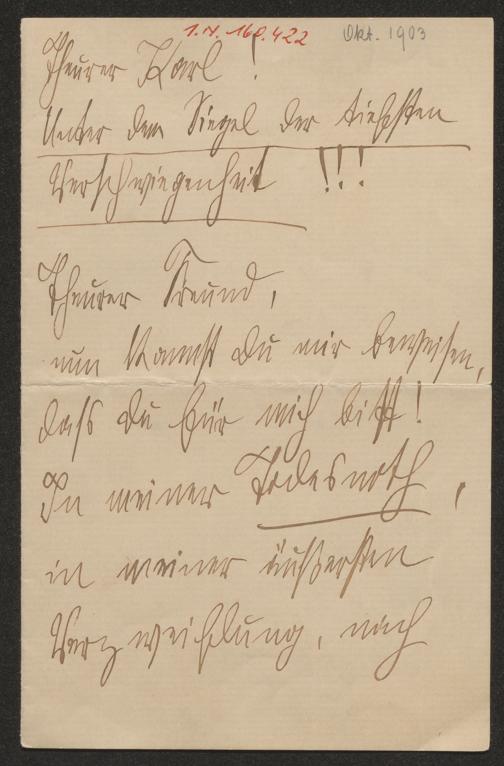 I.N. 160.422 Okt. 1903
Theurer Karl!
Unter dem Siegel der tiefsten
Verschwiegenheit !!!
Theurer Freund,
nun kannst Du mir beweisen,
dass Du für mich bist!
In meiner Todesnoth,
in meiner äußersten
Verzweiflung, nach